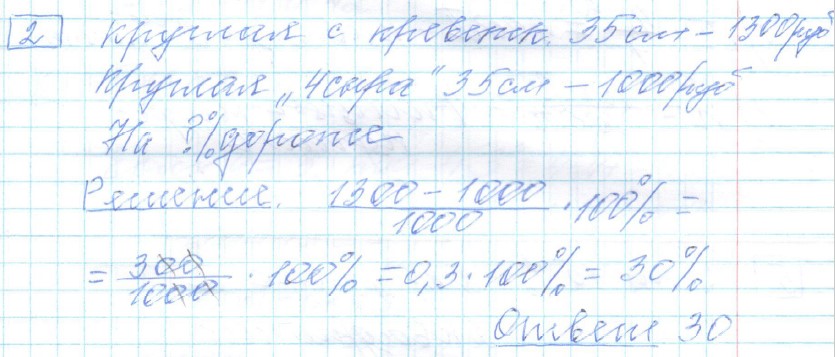 2 Круглая с креветк. 35см – 1300руб
Круглая „4сыра“ 35см – 1000руб
На ?% дороже
Решение. 1300 – 1000 / 1000 · 100% =
= 300 / 1000 · 100% = 0,3 · 100% = 30%
Ответ 30